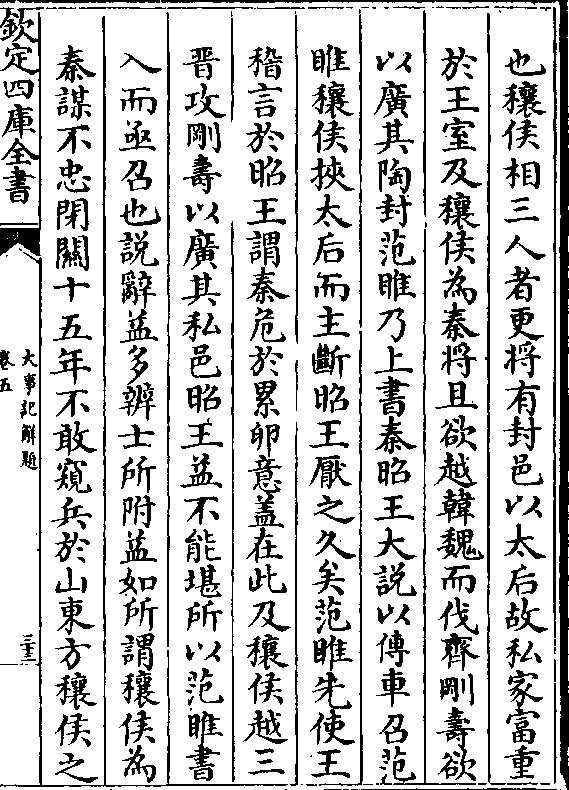 也穰侯相三人者更将有封邑以太后故私家富重
於王室及穰侯為秦将且欲越韓魏而伐齊剛壽欲
以廣其陶封范睢乃上書秦昭王大説以傳車召范
睢穰侯挾太后而主斷昭王厭之久矣范睢先使王
稽言於昭王謂秦危於累卵意盖在此及穰侯越三
晋攻剛壽以廣其私邑昭王益不能堪所以范睢書
入而亟召也説辭益多辨士所附益如所謂穰侯為
秦謀不忠閉關十五年不敢窺兵於山東方穰侯之
欽定四庫全書
大事記解題
卷五
三十二